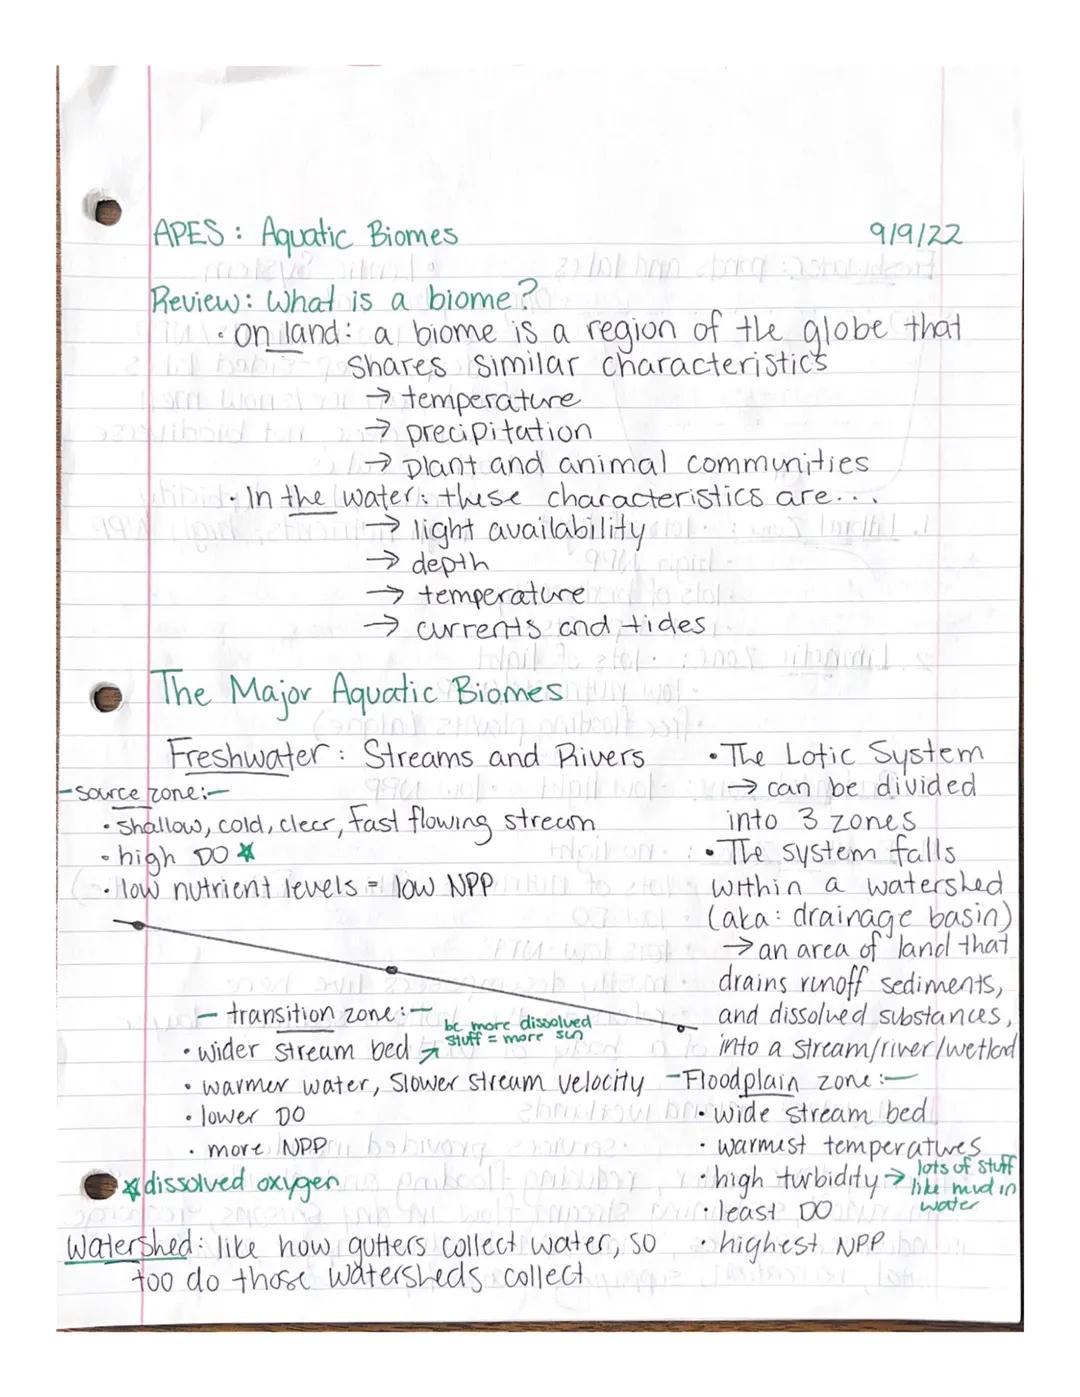 APES: Aquatic Biomes 9/9/22
Review: What is a biome?
• On land: a biome is a region of the globe that
shares similar characteristics
→ temperature
→ precipitation
→ plant and animal communities
• In the water: these characteristics are...
→ light availability
→ depth
→ temperature
→ currents and tides
The Major Aquatic Biomes
Freshwater: Streams and Rivers
- Source zone: -
• Shallow, cold, clear, fast flowing stream
• high DO ☆
• low nutrient levels = low NPP
- transition zone: -
• wider stream bed
bc more dissolved
stuff = more sun
• warmer water, slower stream velocity
• lower DO
• more NPP
☆ dissolved oxygen
Watershed: like how gutters collect water, so
too do those watersheds collect
• The Lotic System
→ can be divided
into 3 zones
• The system falls
within a watershed
(aka: drainage basin)
→ an area of land that
drains runoff sediments,
and dissolved substances,
into a stream/river/wetland
- Floodplain zone: -
• wide stream bed
• warmest temperatures
• high turbidity → lots of stuff
like mud in
water
• least DO
• highest NPP